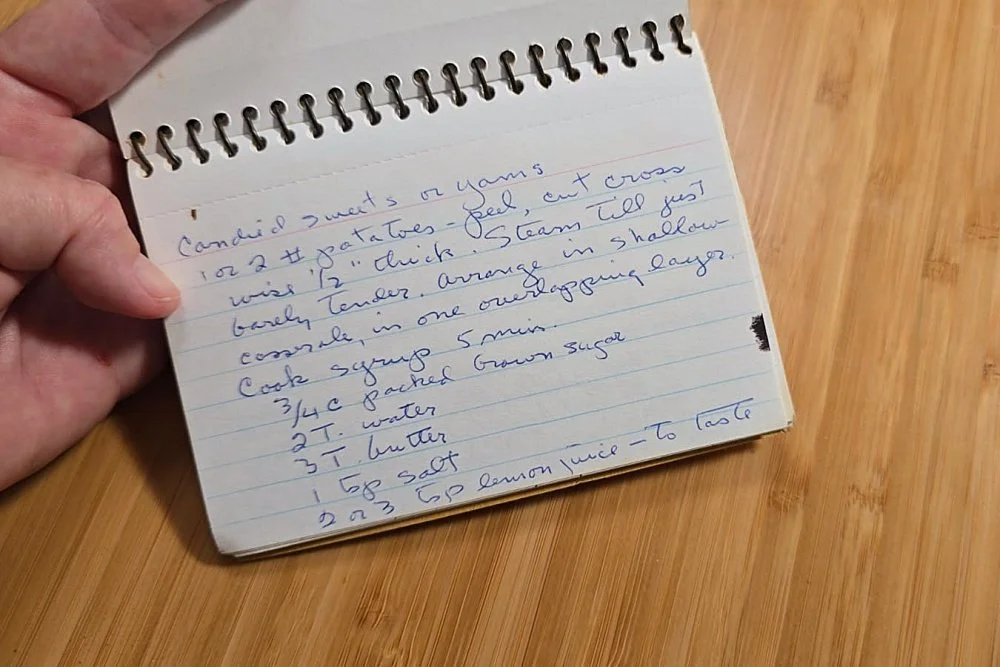 Candied sweets or yams
1 or 2 # potatoes - peel, cut cross
wise 1/2" thick. Steam till just
barely tender. arrange in shallow
casserole, in one overlapping layer.
Cook syrup 5 min.
3/4 c packed brown sugar
2 T. water
3 T butter
1 tsp salt
2 or 3 tsp lemon juice - to taste